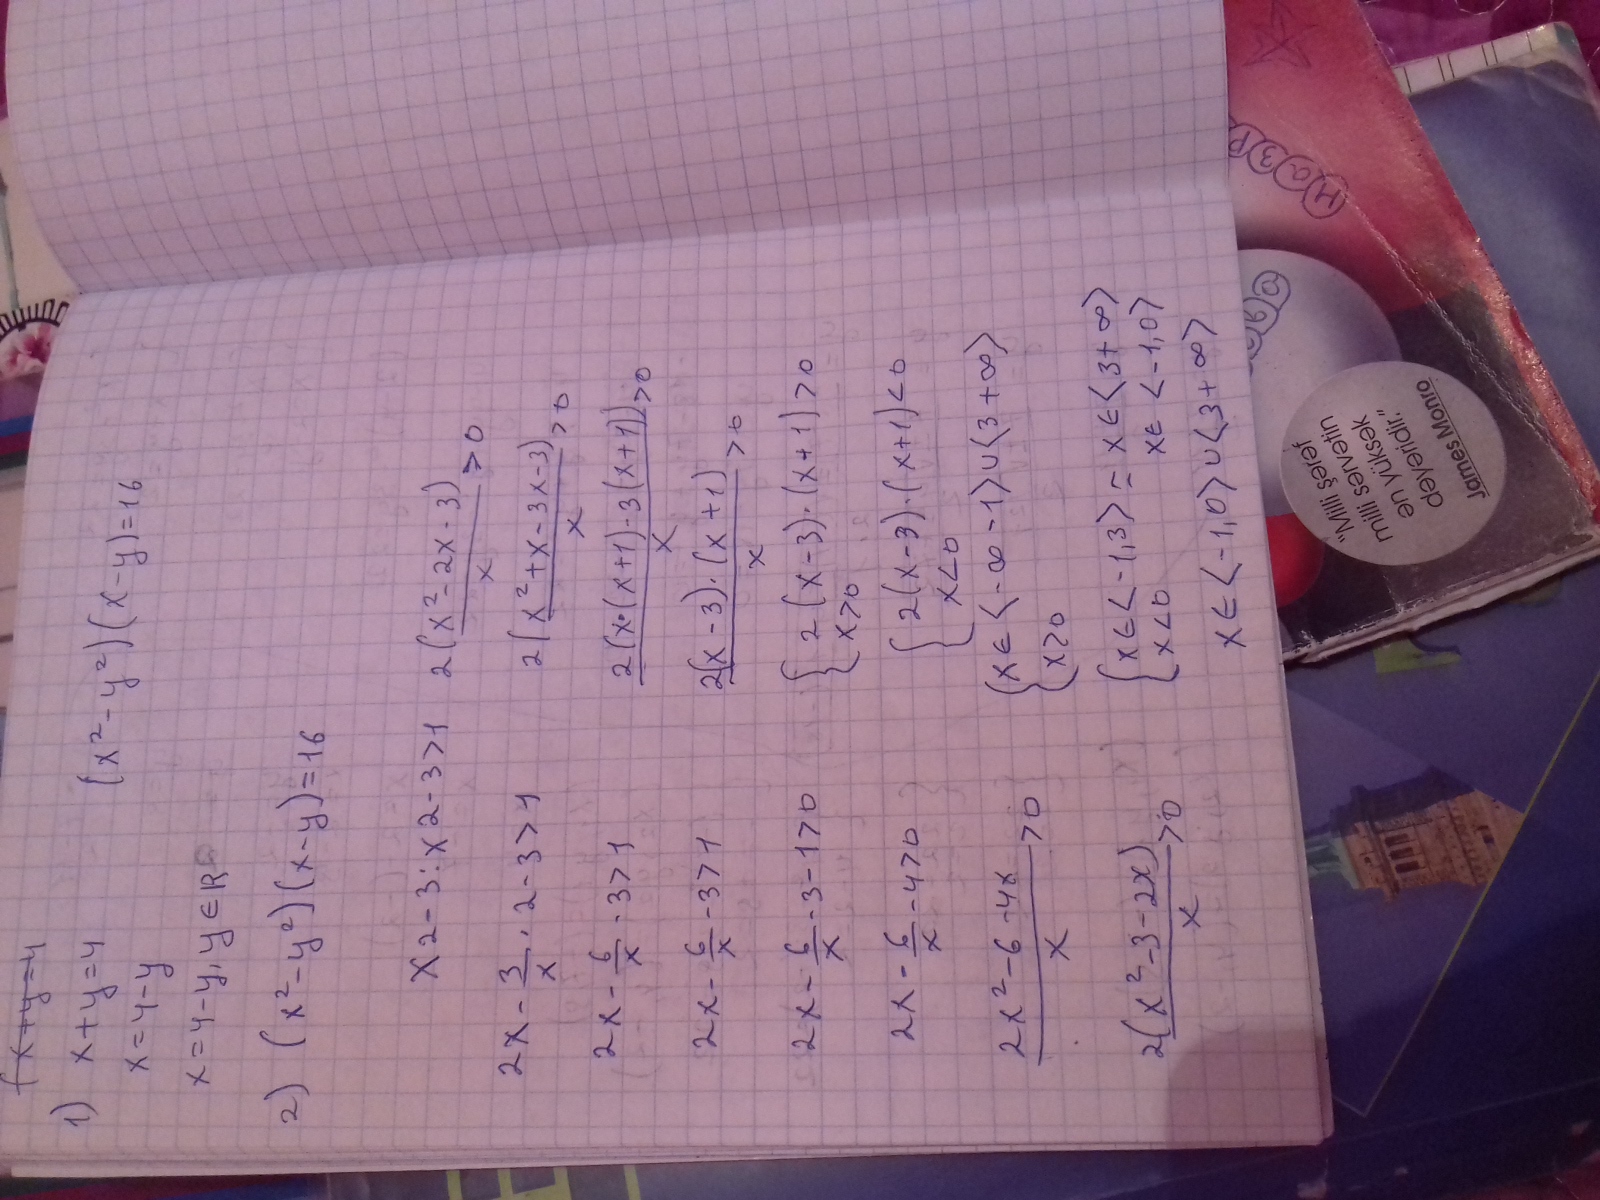 {x+y=4
1) x+y=4
x=4-y
x=4-y, y∈R
(x²-y²)(x-y)=16
2) (x²-y²)(x-y)=16
x2-3:x2-3>1
2x-3/x·2-3>1
2x-6/x-3>1
2x-6/x-3>1
2x-6/x-3-1>0
2x-6/x-4>0
2x²-6-4x/x>0
2(x²-3-2x)/x>0
2(x²-2x-3)/x>0
2(x²+x-3x-3)/x>0
2(x·(x+1)-3(x+1))/x>0
2(x-3)·(x+1)/x>0
{2(x-3)·(x+1)>0
x>0
{2(x-3)·(x+1)<0
x<0
{x∈<-∞-1>∪<3+∞>
x>0
{x∈<-1,3>= x∈<3+∞>
x<0 x∈<-1,0>
x∈<-1,0>∪<3+∞>
"Milli şərəf
milli sərvətin
ən yüksək
dəyəridir,"
James Monro